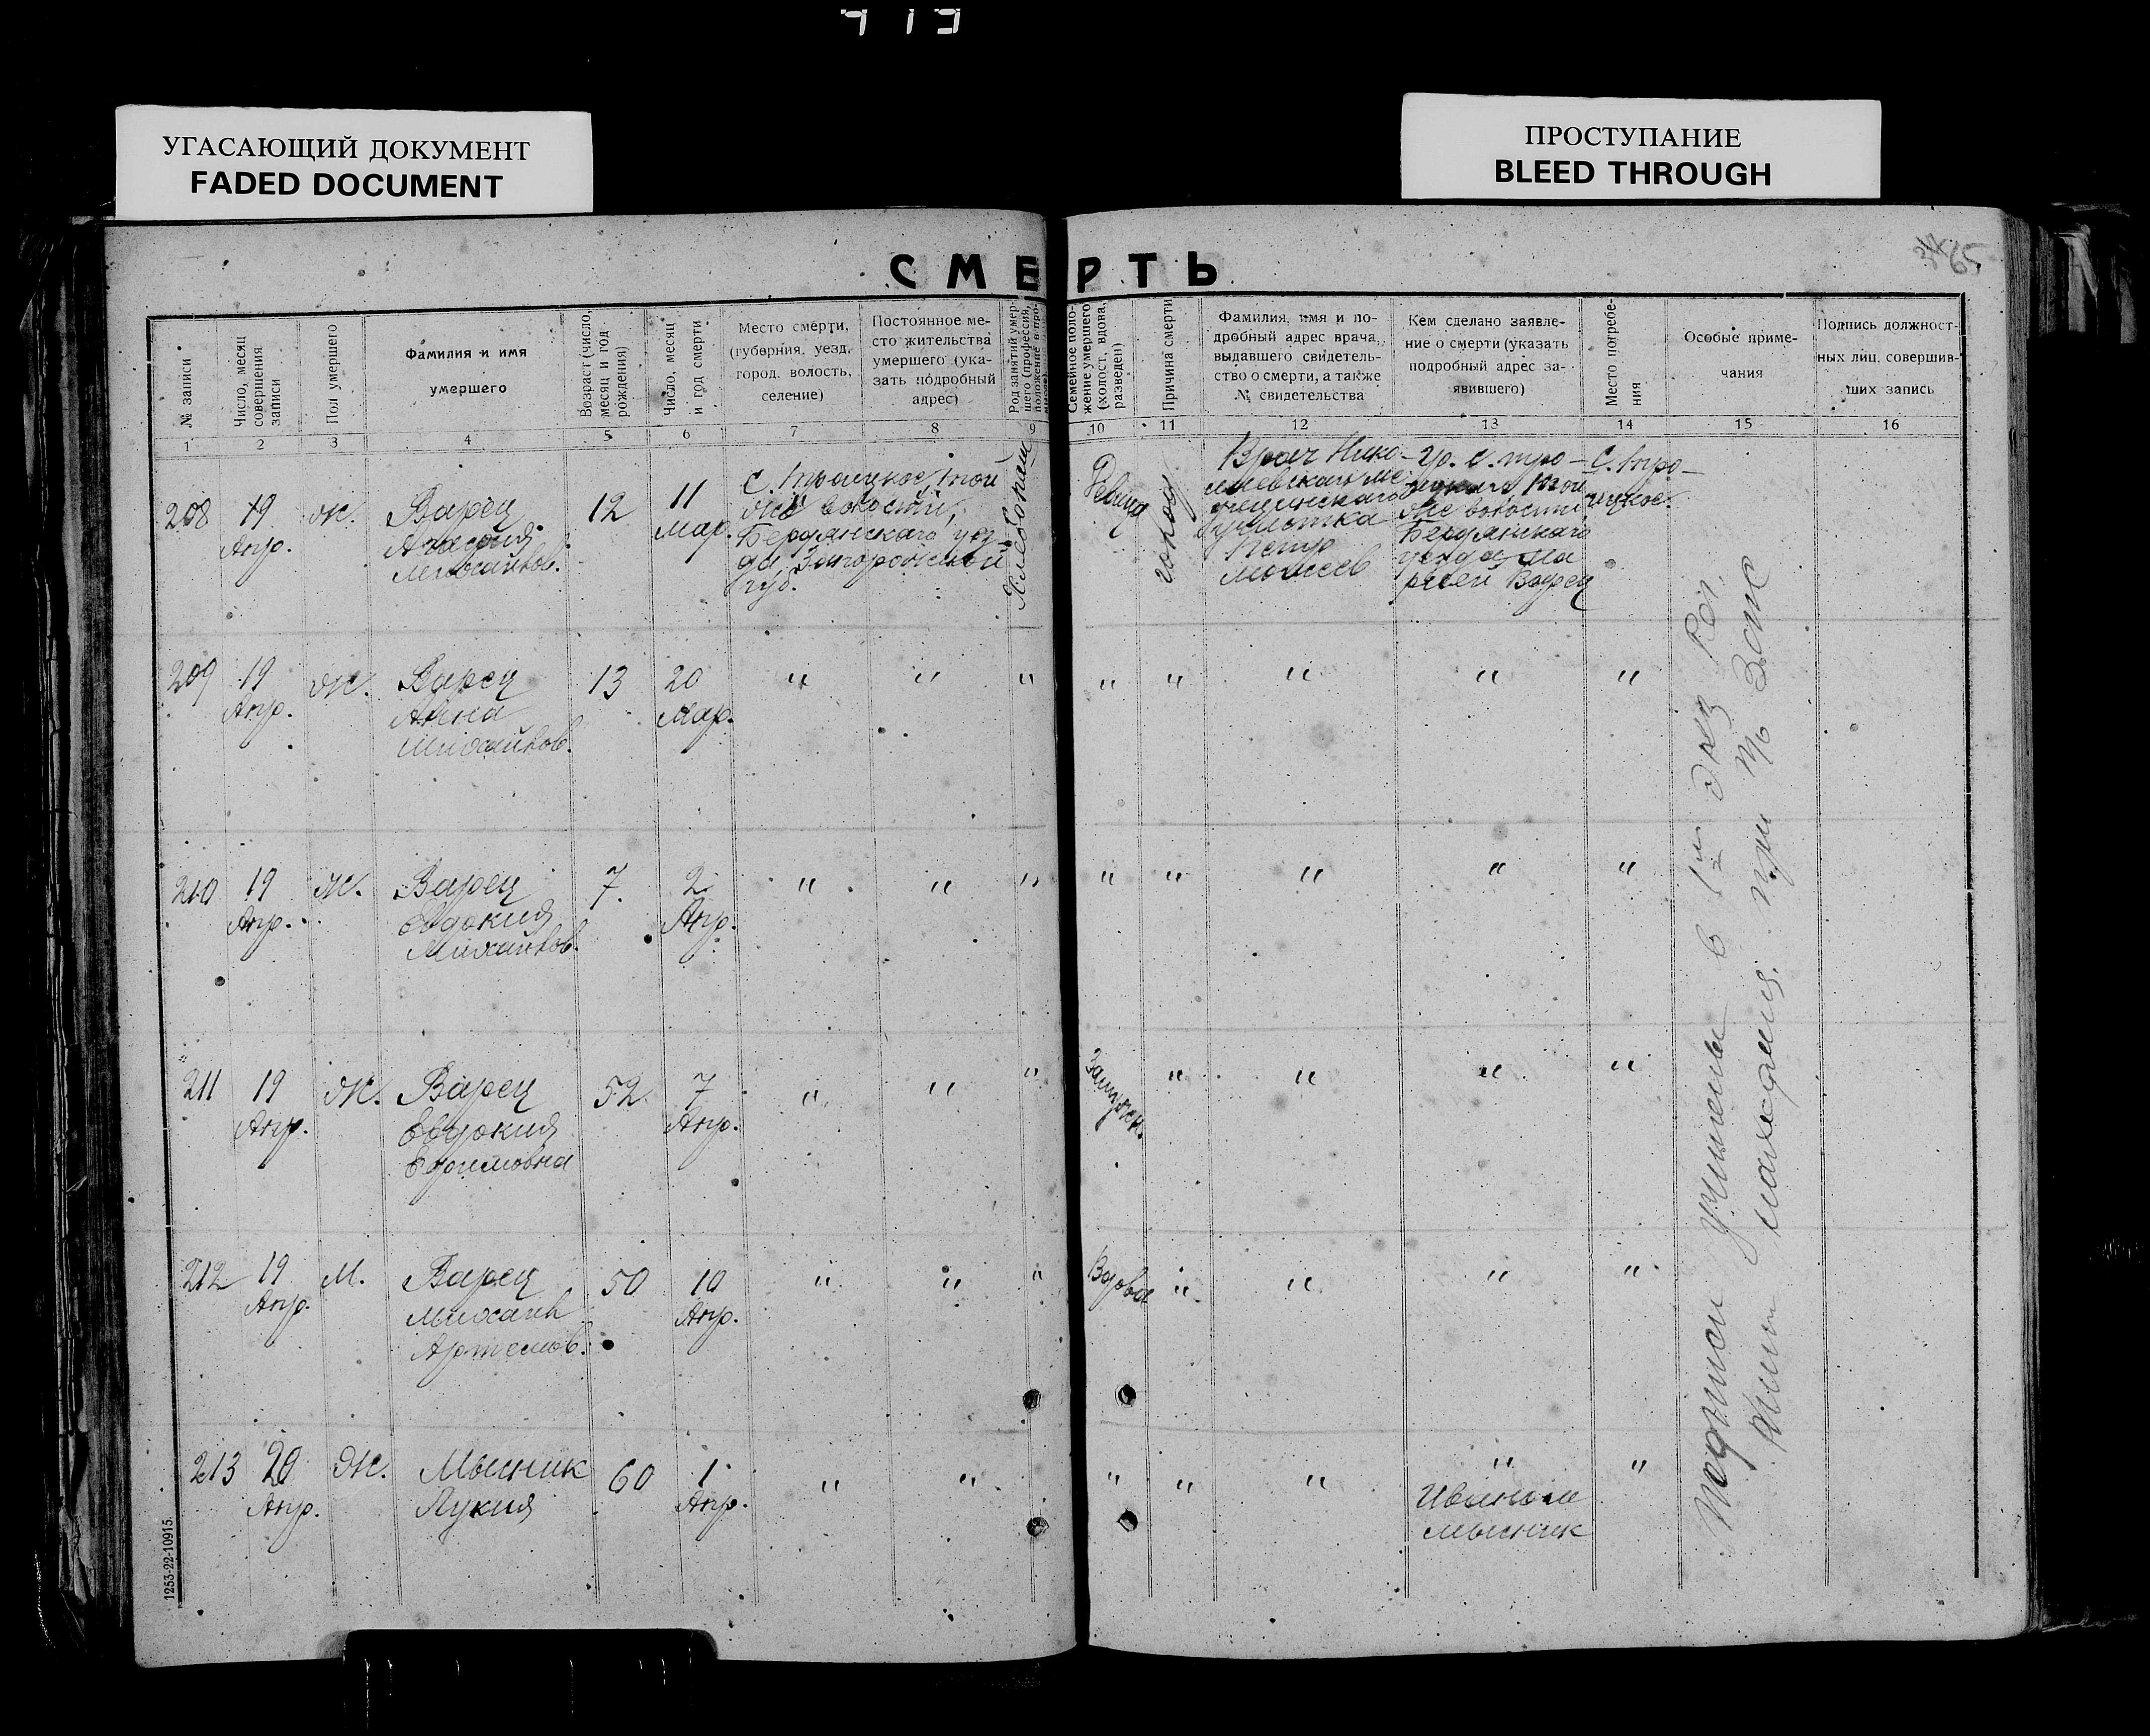 413
УГАСАЮЩИЙ ДОКУМЕНТ
FADED DOCUMENT
ПРОСТУПАНИЕ
BLEED THROUGH
65
СМЕРТЬ
№ записи
Число, месяц
совершения
записи
Пол умершего
Фамилия и имя
умершего
Возраст (число,
месяц и год
рождения)
Число, месяц
и год смерти
Место смерти,
(губерния, уезд,
город, волость,
селение)
Постоянное ме-
сто жительства
умершего (ука-
зать подробный
адрес)
Род занятий умер-
шего (профессия,
положение в про-
Семейное поло-
жение умершего
(холост, вдова,
разведен)
Причина смерти
Фамилия, имя и по-
дробный адрес врача,
выдавшего свидетель-
ство о смерти, а также
№ свидетельства
Кем сделано заявле-
ние о смерти (указать
подробный адрес за-
явившего)
Место погребе-
ния
Особые приме-
чания
Подпись должност-
ных лиц, совершив-
ших запись
1 2 3 4 5 6 7 8 9 10 11 12 13 14 15 16
208
19
Апр.
Ж.
Варец
Михайлов.
12
11
Мар.
С. Троицкое, той
же волости,
Бердянского уез-
да Запорожской
губ.
Хлебопаш
Девица
голод
Врач Нико-
лаевского ме-
дицинского
участка
Петр
Моисеев
Гр. с. Тро-
ицкого той
же волости
Бердянского
уезда Ма
рией Варец
С. Тро-
ицкое.
209
19
Апр.
Ж.
Варец
Анна
Михайлов.
13
20
Мар.
" " " " " " " "
210
19
Апр.
Ж.
Варец
Евдокия
Михайлов.
7.
2
Апр.
" " " " " " " "
211
19
Апр.
Ж.
Варец
Евдокия
Ефимовна
52
7
Апр.
" " "
Замужн.
" " " "
212
19
Апр.
М.
Варец
Михаил
Артемов.
50
10
Апр.
" " "
Вдова
" " " "
213
20
Апр.
Ж.
Мысник
Лукия
60
1
Апр.
" " " " " " "
Иваном
Мысник
"
Подписи учинены в 1м экз Рег.
Книги находящ. при
1253-22-10915.